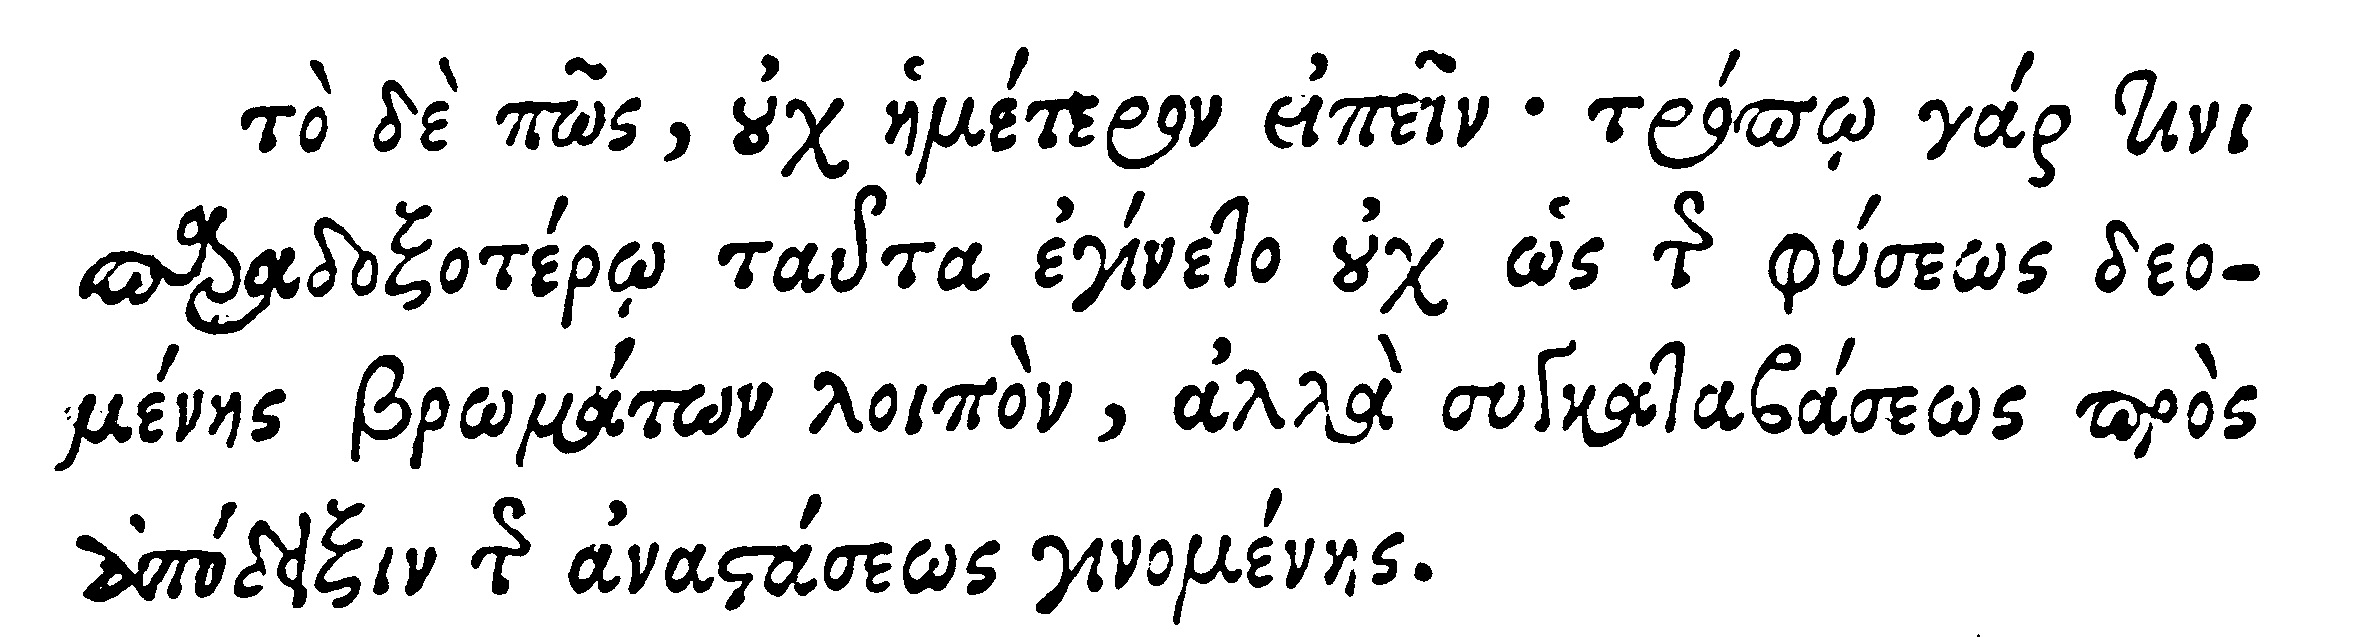 τὸ δὲ πῶς, οὐχ ἡμέτερον εἰπεῖν · τρόπῳ γάρ τινι
παραδοξοτέρῳ ταῦτα ἐγίνετο οὐχ ὡς τῆς φύσεως δεο-
μένης βρωμάτων λοιπὸν, ἀλλὰ συγκαταβάσεως πρὸς
ἀπόδειξιν τῆς ἀναστάσεως γινομένης.